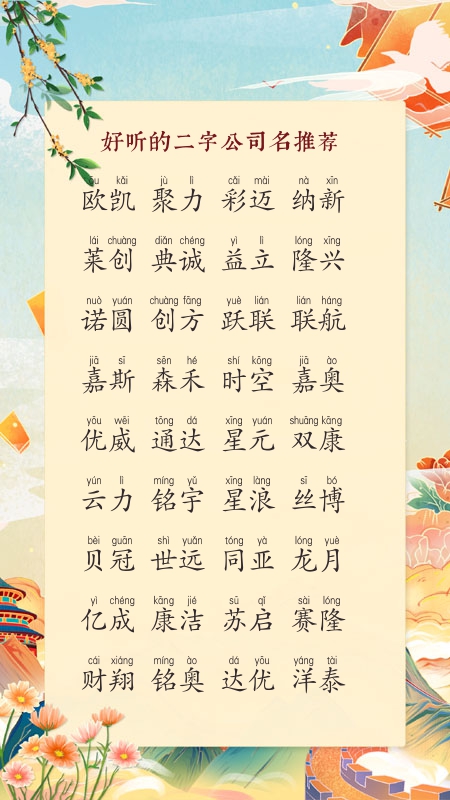 好听的二字公司名推荐
ōu kǎi jù lì cǎi mài nà xīn
欧凯 聚力 彩迈 纳新
lái chuàng diǎn chéng yì lì lóng xīng
莱创 典诚 益立 隆兴
nuò yuán chuàng fāng yuè lián lián háng
诺圆 创方 跃联 联航
jiā sī sēn hé shí kōng jiā ào
嘉斯 森禾 时空 嘉奥
yōu wēi tōng dá xīng yuán shuāng kāng
优威 通达 星元 双康
yún lì míng yǔ xīng làng sī bó
云力 铭宇 星浪 丝博
bèi guān shì yuǎn tóng yà lóng yuè
贝冠 世远 同亚 龙月
yì chéng kāng jié sū qǐ sài lóng
亿成 康洁 苏启 赛隆
cái xiáng míng ào dá yōu yáng tài
财翔 铭奥 达优 洋泰